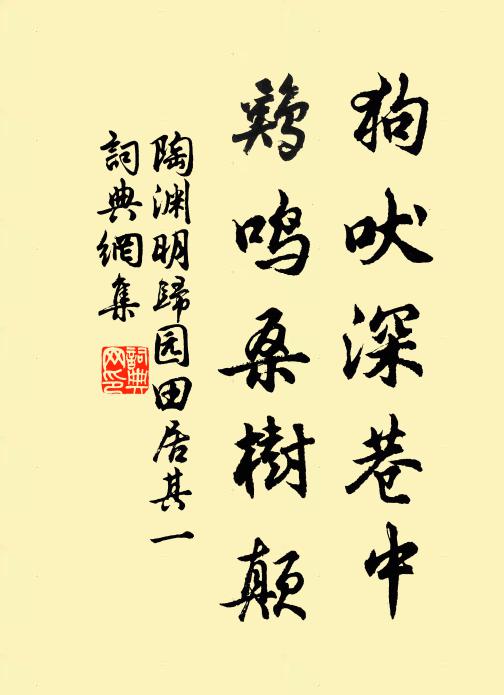 狗吠深巷中
鷄鸣桑樹颠
陶渊明歸园田居其一
詞典網集
詞典
网印